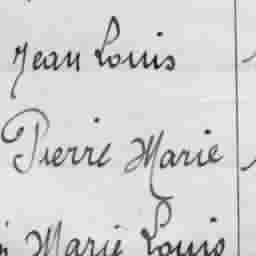 Jean Louis
Pierre Marie
Marie Louis